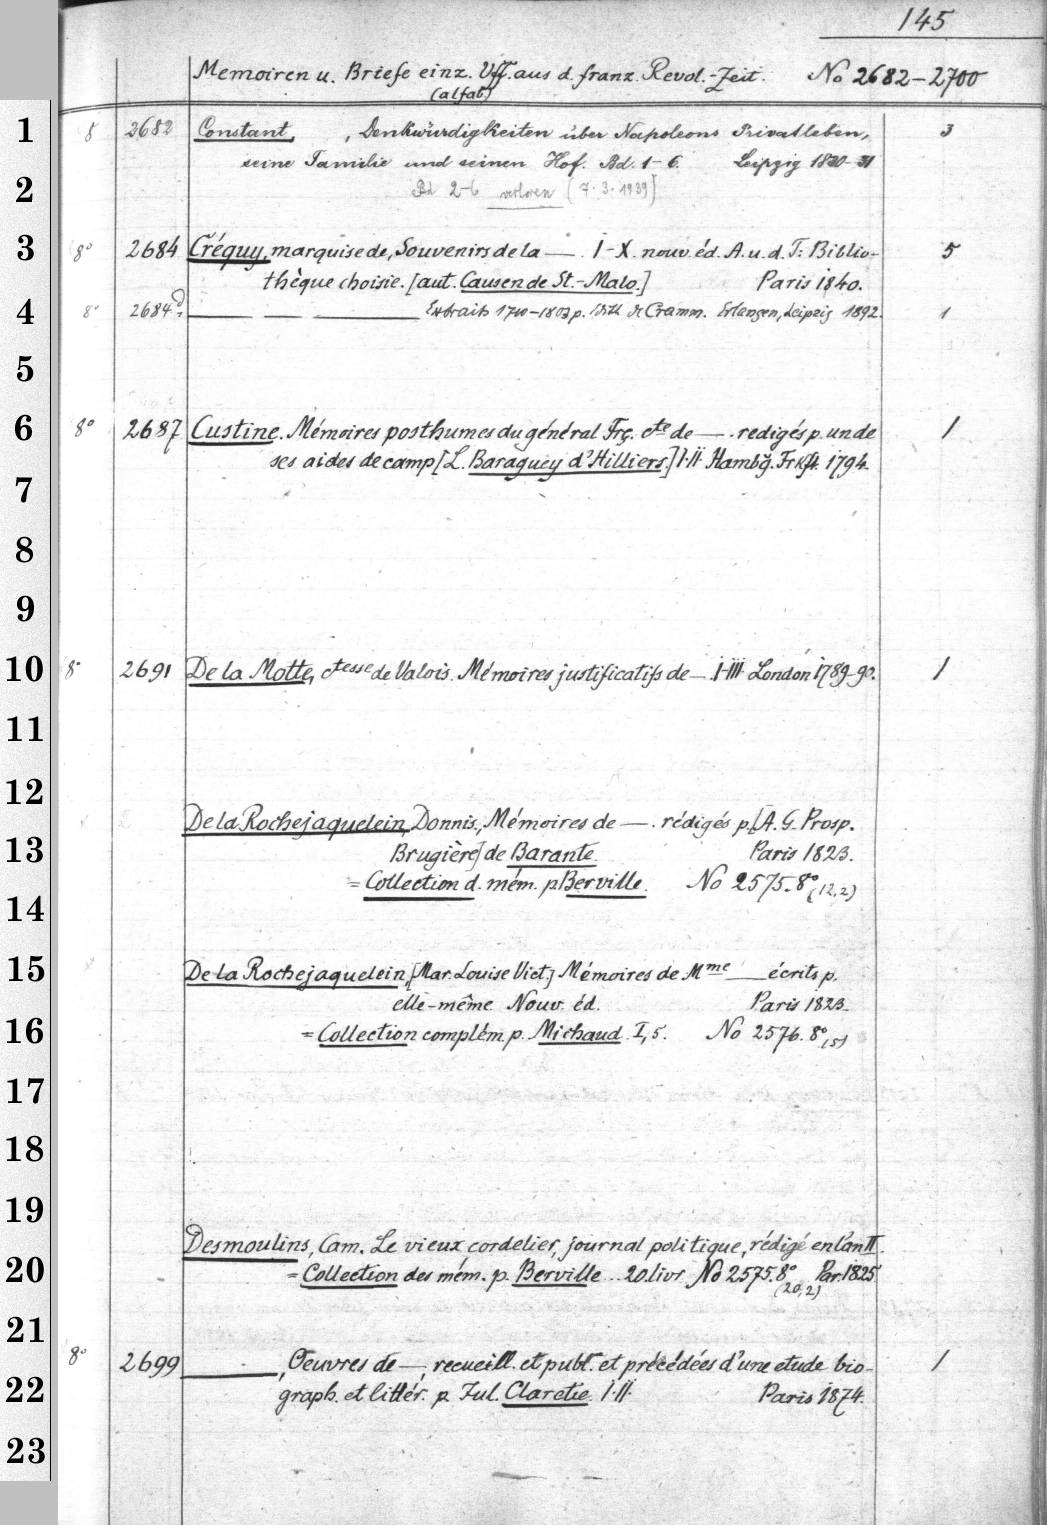 145
Memoiren u. Briefe einz. Vff. aus d. franz. Revol.-Zeit. No 2682-2700
(alfab)
1 8 2682 Constant, , Denkwürdigkeiten über Napoleons Privatleben, 3
seine Familie und seinen Hof. Bd. 1-6. Leipzig 1830-31
2 Bd 2-6 verloren [7.3.1939]
3 8° 2684 Créquy, marquise de, Souvenirs de la —. I-X. nouv. éd. A.u.d.T: Biblio- 5
thèque choisie. [aut. Causen de St.-Malo.] Paris 1840.
4 8° 2684d Extraits 1710-1803 p. de Cramm. Erlangen, Leipzig 1892. 1
5
6 8° 2687 Custine. Mémoires posthumes du général Frç. cte de —. redigés p. un de 1
ses aides de camp [L. Baraguey d'Hilliers.] I.II. Hambg. Frkft. 1794.
7
8
9
10 8° 2691 De la Motte, ctesse de Valois. Mémoires justificatifs de —. I-III. London 1789-90. 1
11
12
De la Rochejaquelein, Donnis., Mémoires de —. rédigés p. [A. G. Prosp.
13 Brugière] de Barante. Paris 1823.
= Collection d. mém. p Berville. No 2575. 8° (12,2)
14
15 De la Rochejaquelein, [Mar. Louise Vict.] Mémoires de Mme — écrits p.
elle-même. Nouv. éd. Paris 1823.
16 = Collection complém. p. Michaud. I, 5. No 2576. 8° (5)
17
18
19
Desmoulins, Cam. Le vieux cordelier, journal politique, rédigé en l'an II.
20 = Collection des mém. p. Berville ... 20. livr. No 2575. 8° Par. 1825
(20,2)
21
8° 2699 —, Oeuvres de —, recueill. et publ. et précédées d'une etude bio- 1
22 graph. et littér. p. Jul. Claretie. I.II. Paris 1874.
23